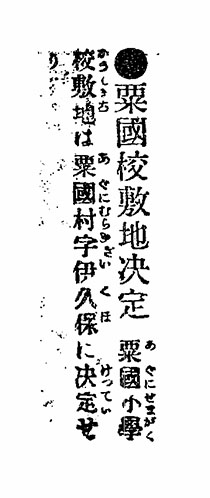 ●粟國校敷地决定 粟國小學
校敷地は粟國村字伊久保に决定せ
り